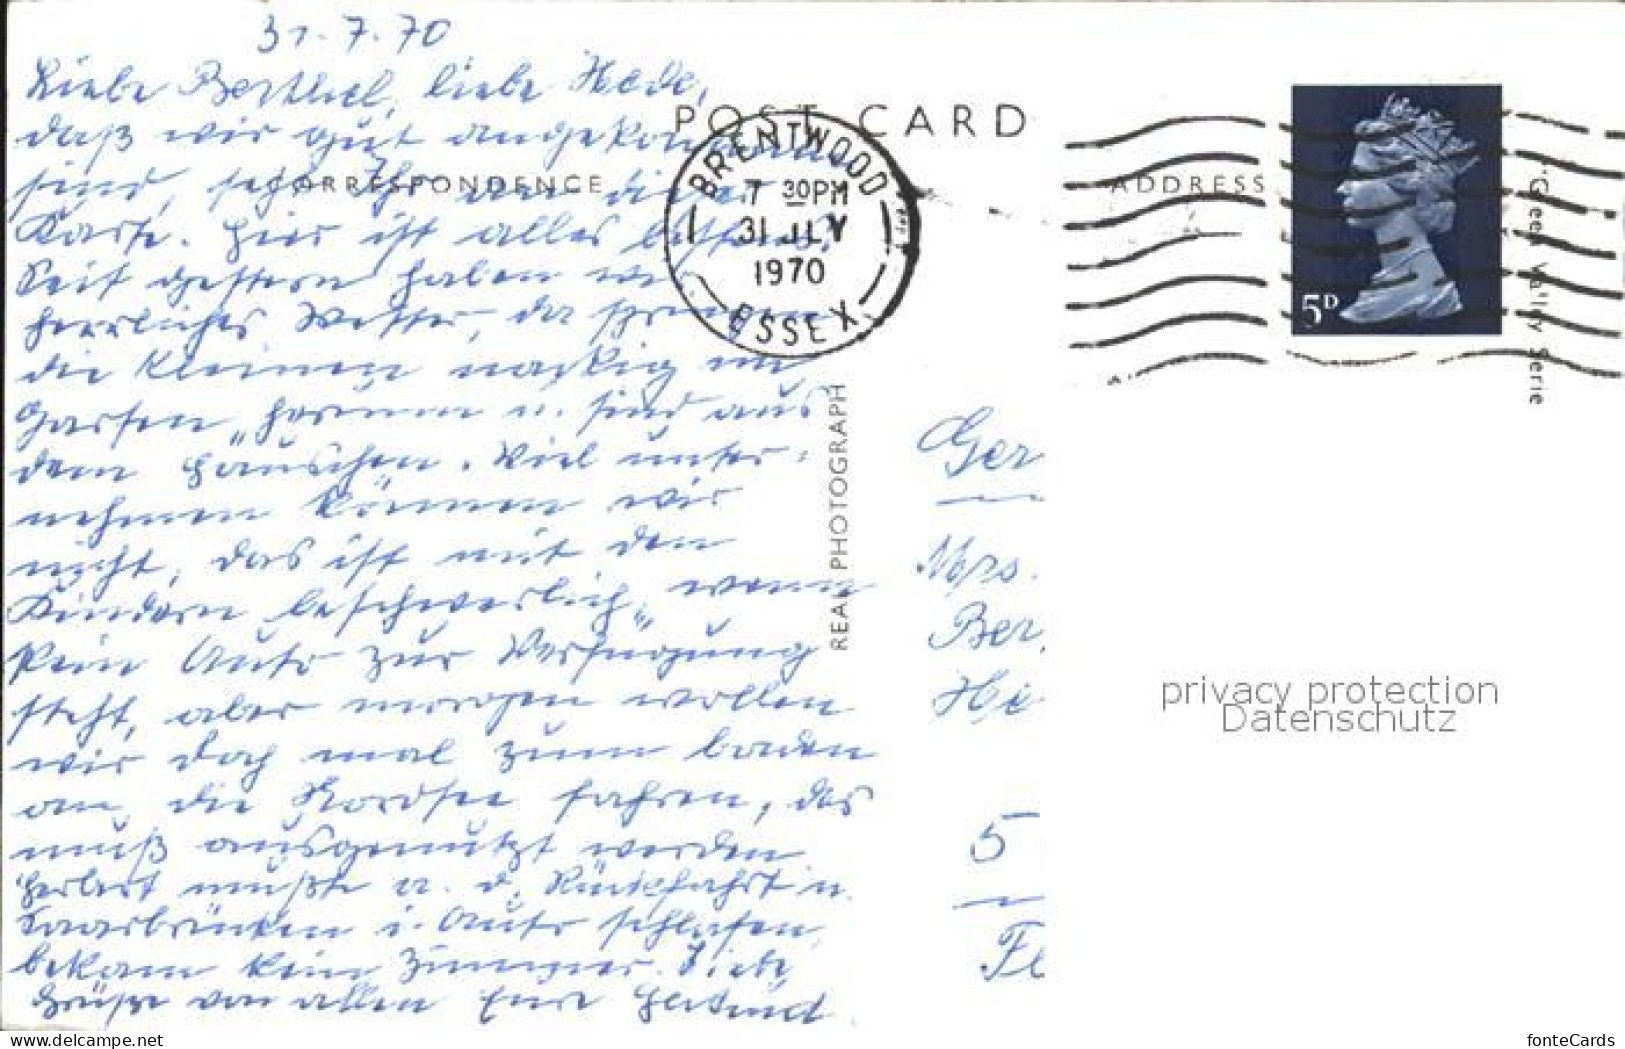 31.7.70
Liebe Berthel, liebe Hede,
daß wir gut angekommen
sind, seht Ihr an dieser
Karte. Hier ist alles bestens.
Seit gestern haben wir
herrliches Wetter, da springen
die Kleinen nackig im
Garten herum u. sind aus
dem Häuschen. Viel unter-
nehmen können wir
nicht, das ist mit den
Kindern beschwerlich, wenn
kein Auto zur Verfügung
steht, aber morgen wollen
wir doch mal zum baden
an die Nordsee fahren, das
muß ausgenützt werden.
Herbert mußte a. d. Rückfahrt in
Saarbrücken i. Auto schlafen,
bekam kein Zimmer. Liebe
Grüße von allen Eure Gertrud
POST CARD
CORRESPONDENCE
ADDRESS
BRENTWOOD
7 30PM
31 JLY
1970
ESSEX
5D
"Green Valley" Serie
REAL PHOTOGRAPH
Ger
Mrs.
Ber
He
5
Fe
privacy protection
Datenschutz
www.delcampe.net
fonteCards